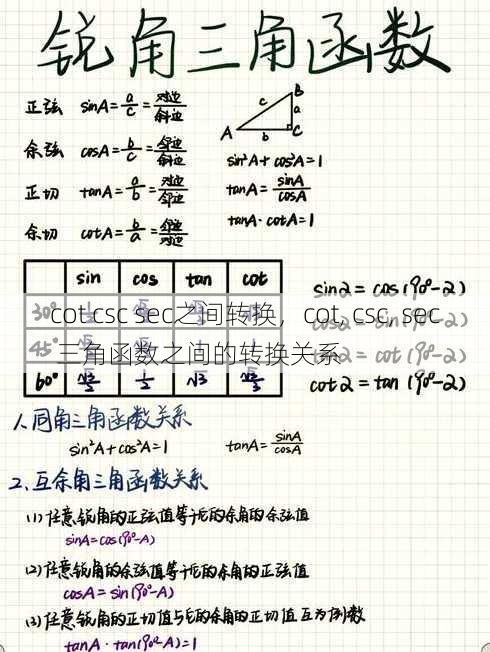 锐角三角函数
正弦 sinA=a/c=对边/斜边
余弦 cosA=b/c=邻边/斜边
正切 tanA=a/b=对边/邻边
余切 cotA=b/a=邻边/对边
B
c
a
A
b
C
sin²A+cos²A=1
tanA=sinA/cosA
tanA·cotA=1
sin cos tan cot
30°
45°
60° √3/2 1/2 √3 √3/3
sinα = cos (90°-α)
= sin (90°-α)
= cot (90°-α)
cotα = tan (90°-α)
cot csc sec之间转换，cot, csc, sec
三角函数之间的转换关系
1.同角三角函数关系
sin²A+cos²A=1 tanA=sinA/cosA
2.互余角三角函数关系
(1)任意锐角的正弦值等于它的余角的余弦值
sinA=cos(90°-A)
(2)任意锐角的余弦值等于它的余角的正弦值
cosA=sin(90°-A)
(3)任意锐角的正切值与它的余角的正切值互为倒数
tanA·tan(90°-A)=1